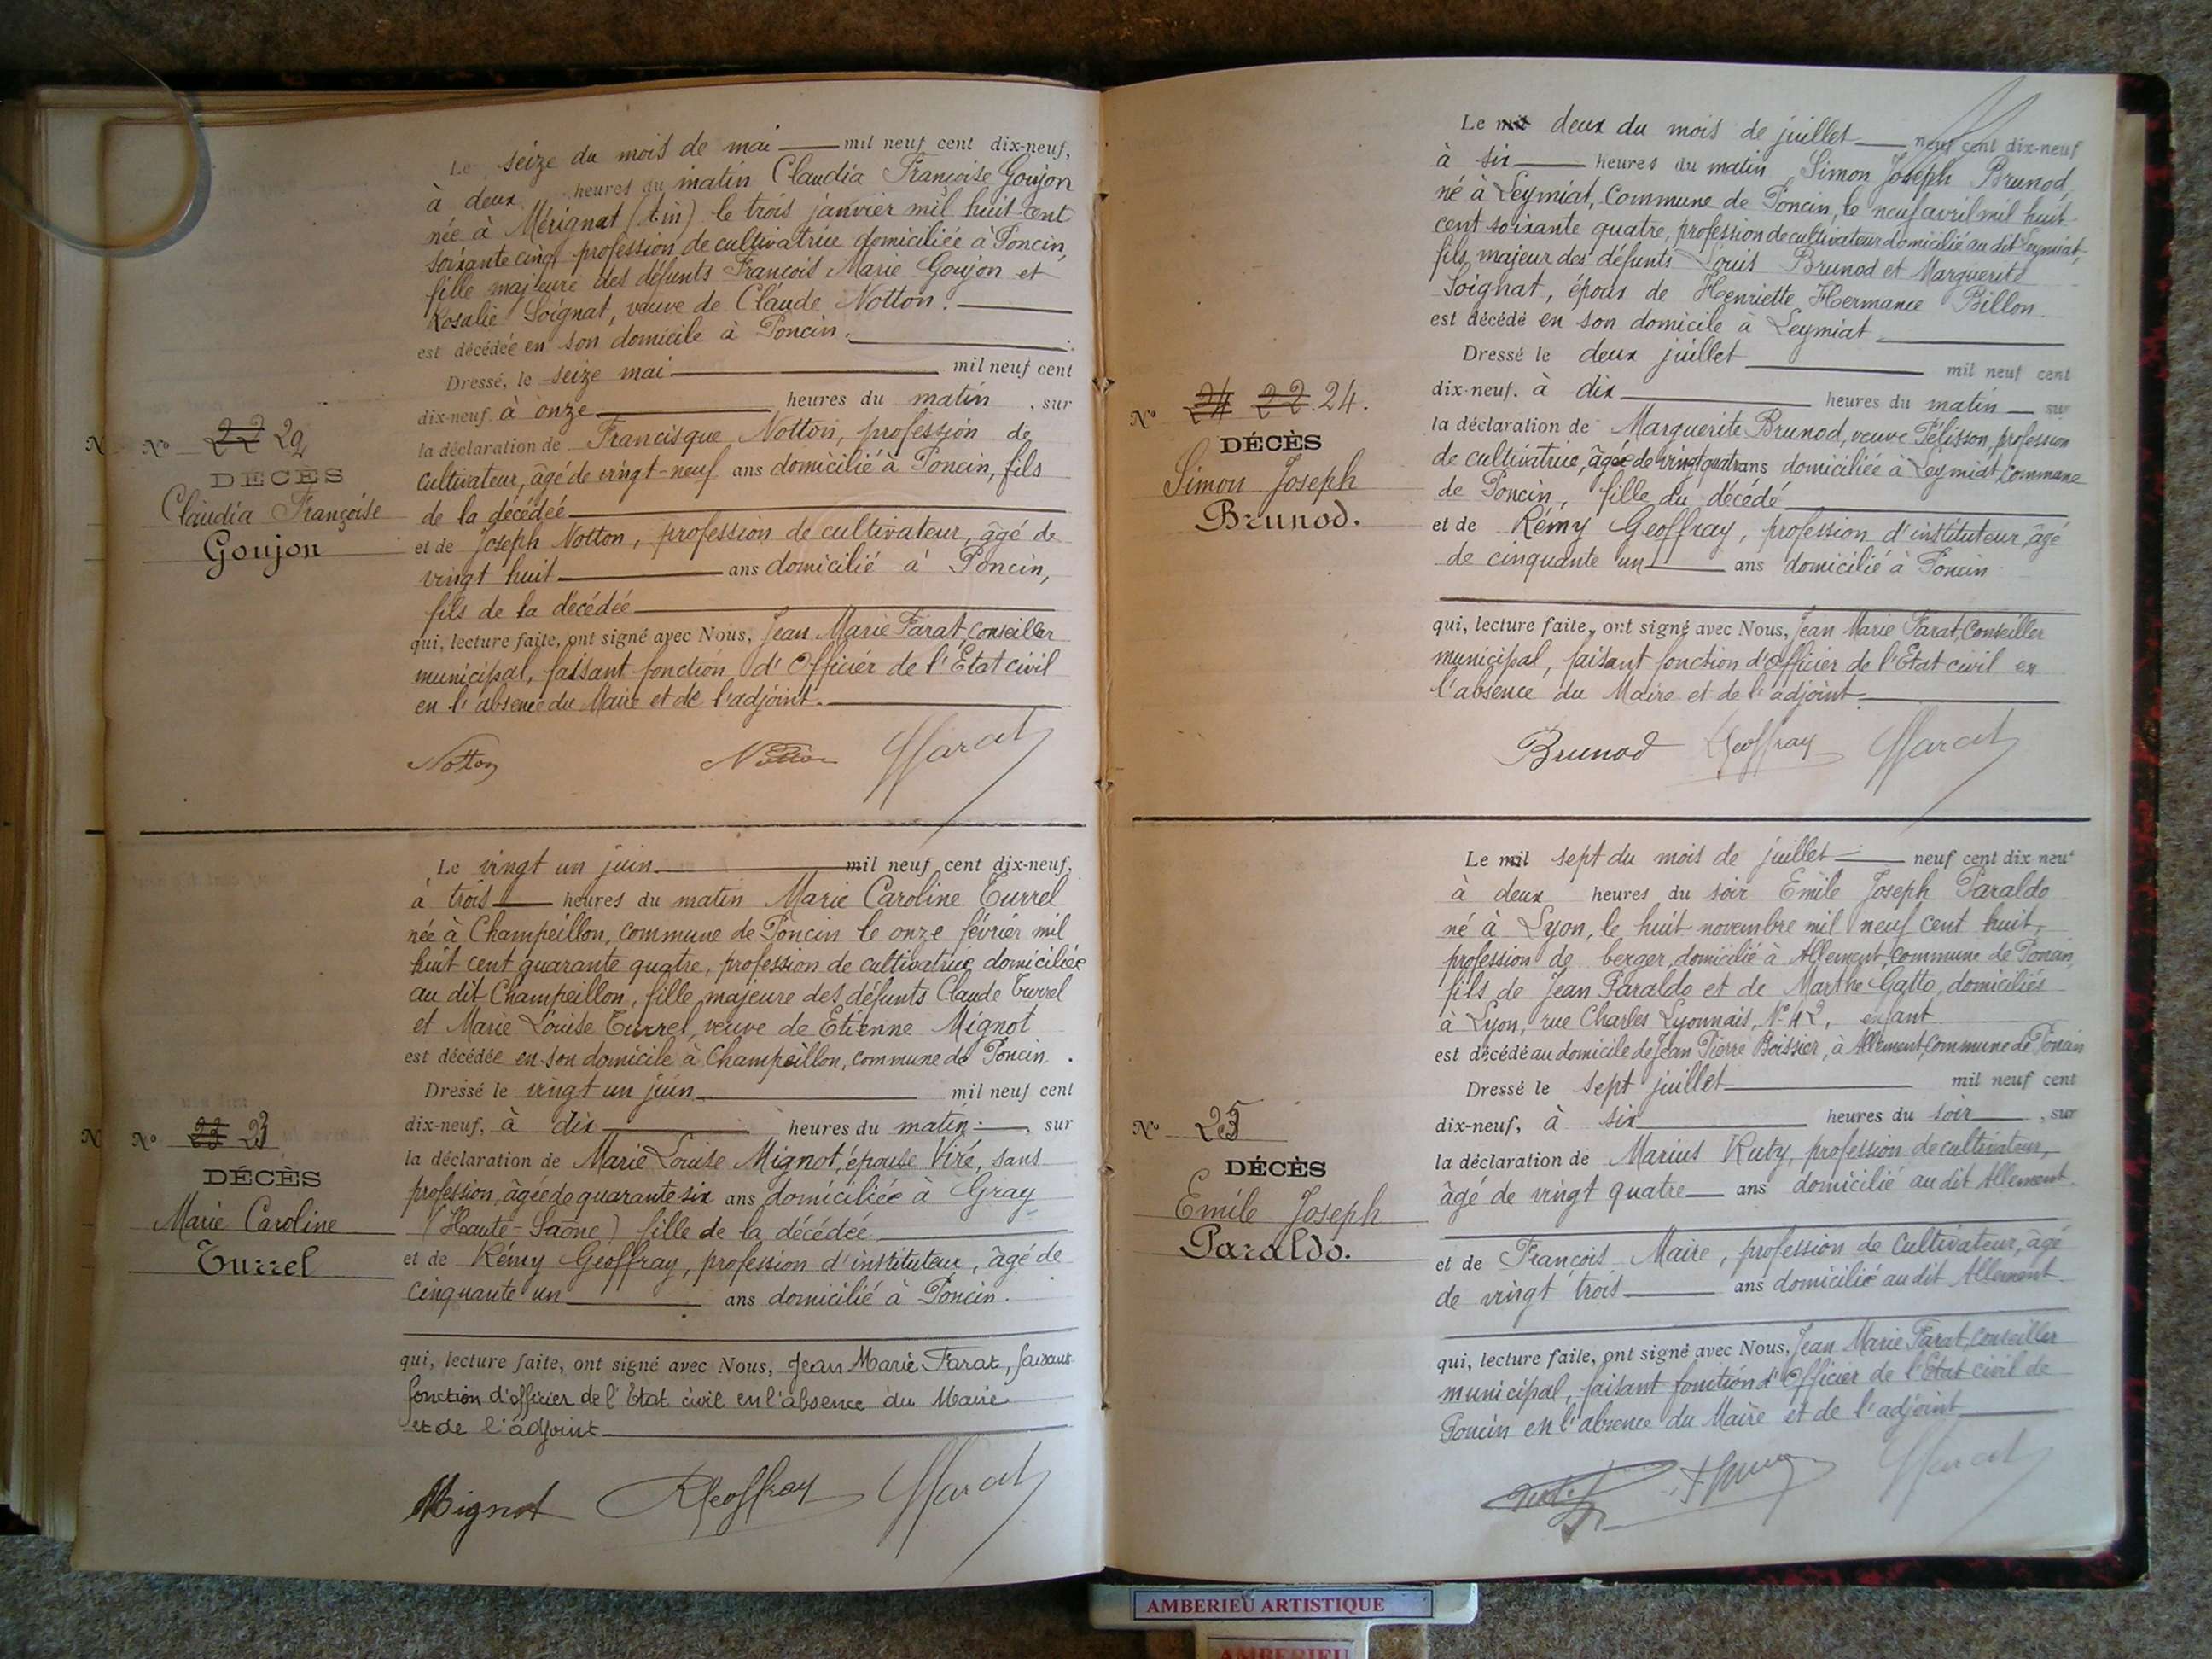 Le seize du mois de mai mil neuf cent dix-neuf,
à deux heures du matin Claudia Françoise Goujon
née à Mérignat (Ain) le trois janvier mil huit cent
soixante cinq profession de cultivatrice domiciliée à Poncin,
fille majeure des défunts François Marie Goujon et
Rosalie Soignat, veuve de Claude Notton.
est décédée en son domicile à Poncin.
Dressé, le seize mai mil neuf cent
dix-neuf à onze heures du matin, sur
la déclaration de Francisque Notton, profession de
cultivateur, âgé de vingt-neuf ans domicilié à Poncin, fils
de la décédée
et de Joseph Notton, profession de cultivateur, âgé de
vingt huit ans domicilié à Poncin,
fils de la décédée
qui, lecture faite, ont signé avec Nous, Jean Marie Farat, Conseiller
municipal, faisant fonction d'Officier de l'Etat civil
en l'absence du Maire et de l'adjoint.
Notton Notton Farat
N° 22
DÉCÈS
Claudia Françoise
Goujon
Le vingt un juin mil neuf cent dix-neuf,
à trois heures du matin Marie Caroline Turrel
née à Champeillon, commune de Poncin le onze février mil
huit cent quarante quatre, profession de cultivatrice domiciliée
au dit Champeillon, fille majeure des défunts Claude Turrel
et Marie Louise Turrel, veuve de Etienne Mignot
est décédée en son domicile à Champeillon, commune de Poncin.
Dressé le vingt un juin mil neuf cent
dix-neuf, à dix heures du matin, sur
la déclaration de Marie Louise Mignot, épouse Viré, sans
profession, âgée de quarante six ans domiciliée à Gray
(Haute-Saône) fille de la décédée
et de Rémy Geoffray, profession d'instituteur, âgé de
cinquante un ans domicilié à Poncin.
qui, lecture faite, ont signé avec Nous, Jean Marie Farat, faisant
fonction d'officier de l'Etat civil en l'absence du Maire
et de l'adjoint
Mignot RGeoffray Farat
N° 23 23
DÉCÈS
Marie Caroline
Turrel
Le mil deux du mois de juillet neuf cent dix-neuf
à six heures du matin, Simon Joseph Brunod
né à Leymiat, Commune de Poncin, le neuf avril mil huit
cent soixante quatre, profession de cultivateur domicilié au dit Leymiat,
fils majeur des défunts Louis Brunod et Marguerite
Soignat, époux de Henriette Hermance Billon.
est décédé en son domicile à Leymiat
Dressé le deux juillet mil neuf cent
dix-neuf. à dix heures du matin sur
la déclaration de Marguerite Brunod, veuve Pélisson, profession
de cultivatrice, âgée de vingt quatre ans domiciliée à Leymiat, Commune
de Poncin, fille du décédé
et de Rémy Geoffray, profession d'instituteur, âgé
de cinquante un ans domicilié à Poncin
qui, lecture faite, ont signé avec Nous, Jean Marie Farat, Conseiller
municipal, faisant fonction d'Officier de l'Etat civil en
l'absence du Maire et de l'adjoint.
Brunod Geoffray Farat
N° 24 22. 24.
DÉCÈS
Simon Joseph
Brunod.
Le mil sept du mois de juillet neuf cent dix-neuf
à deux heures du soir Emile Joseph Paraldo
né à Lyon, le huit novembre mil neuf cent huit,
profession de berger, domicilié à Allement, Commune de Poncin,
fils de Jean Paraldo et de Marthe Gatto, domiciliés
à Lyon, rue Charles Lyonnais, N° 42, enfant
est décédé au domicile de Jean Pierre Boissier, à Allement, Commune de Poncin
Dressé le sept juillet mil neuf cent
dix-neuf, à six heures du soir, sur
la déclaration de Marius Ruty, profession de cultivateur,
âgé de vingt quatre ans domicilié au dit Allement.
et de François Maire, profession de Cultivateur, âgé
de vingt trois ans domicilié au dit Allement.
qui, lecture faite, ont signé avec Nous, Jean Marie Farat, Conseiller
municipal, faisant fonction d'Officier de l'Etat civil de
Poncin en l'absence du Maire et de l'adjoint
Farat
N° 25
DÉCÈS
Emile Joseph
Paraldo.
AMBERIEU ARTISTIQUE
AMBERIEU